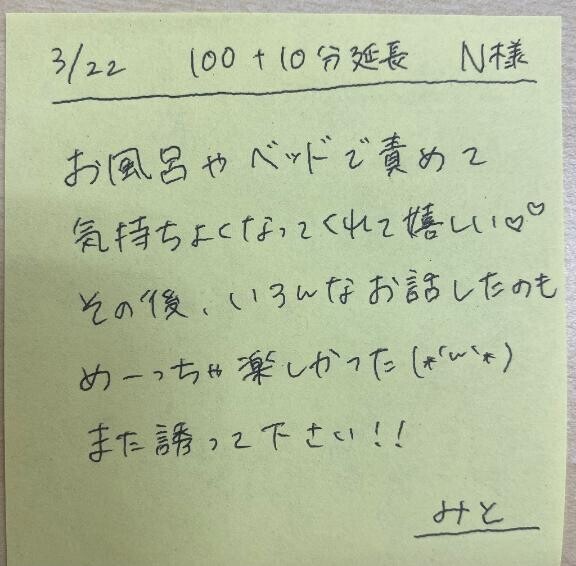 3/22 100+10分延長 N様
お風呂やベッドで責めて
気持ちよくなってくれて嬉しい♡♡
その後、いろんなお話したのも
めーっちゃ楽しかった(*'ω'*)
また誘って下さい!!
みと